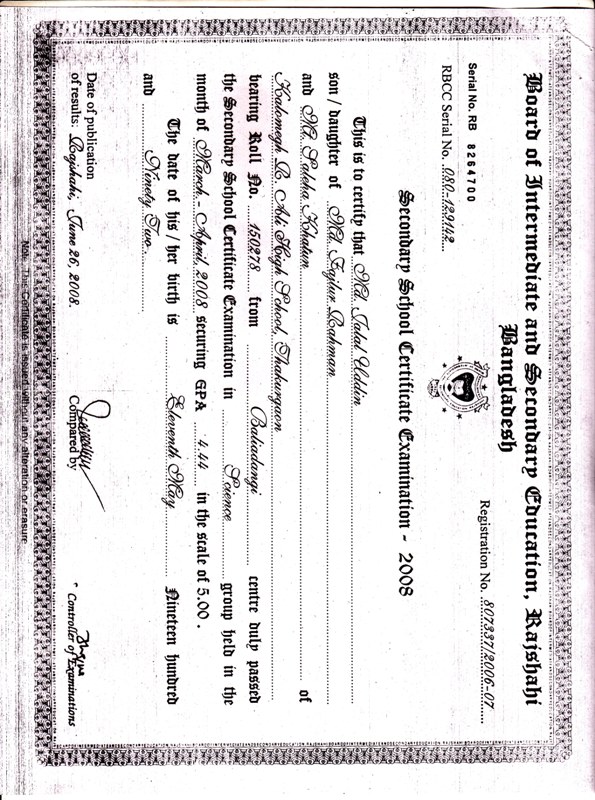 Board of Intermediate and Secondary Education, Rajshahi
Bangladesh
Serial No. RB 8264700
Registration No. 807337/2006-07
RBCC Serial No. 080-129142
Secondary School Certificate Examination - 2008
This is to certify that Md. Jalal Uddin
son / daughter of Md. Fajlur Rahman
and Mst. Saleha Khatun of
Kalomegh R. Ali High School, Thakurgaon
bearing Roll No. 150278 from Baliadangi centre duly passed
the Secondary School Certificate Examination in Science group held in the
month of March - April, 2008 securing GPA 4.44 in the scale of 5.00.
The date of his / her birth is Eleventh May Nineteen hundred
and Ninety Two.
Date of publication
of results: Rajshahi, June 26, 2008.
Compared by
Controller of Examinations
Note: The Certificate is issued without any alteration or erasure